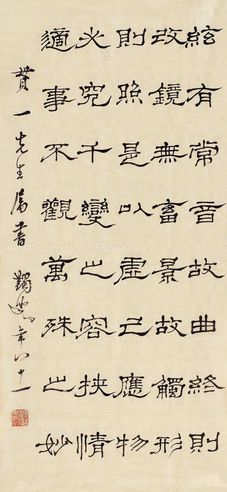 絃有常音故曲終則
改鏡無畜景故觸形
則照是以虛己應物
必究千變之容挾情
適事不觀萬殊之妙
一先生屬書 蠲叟年八十一